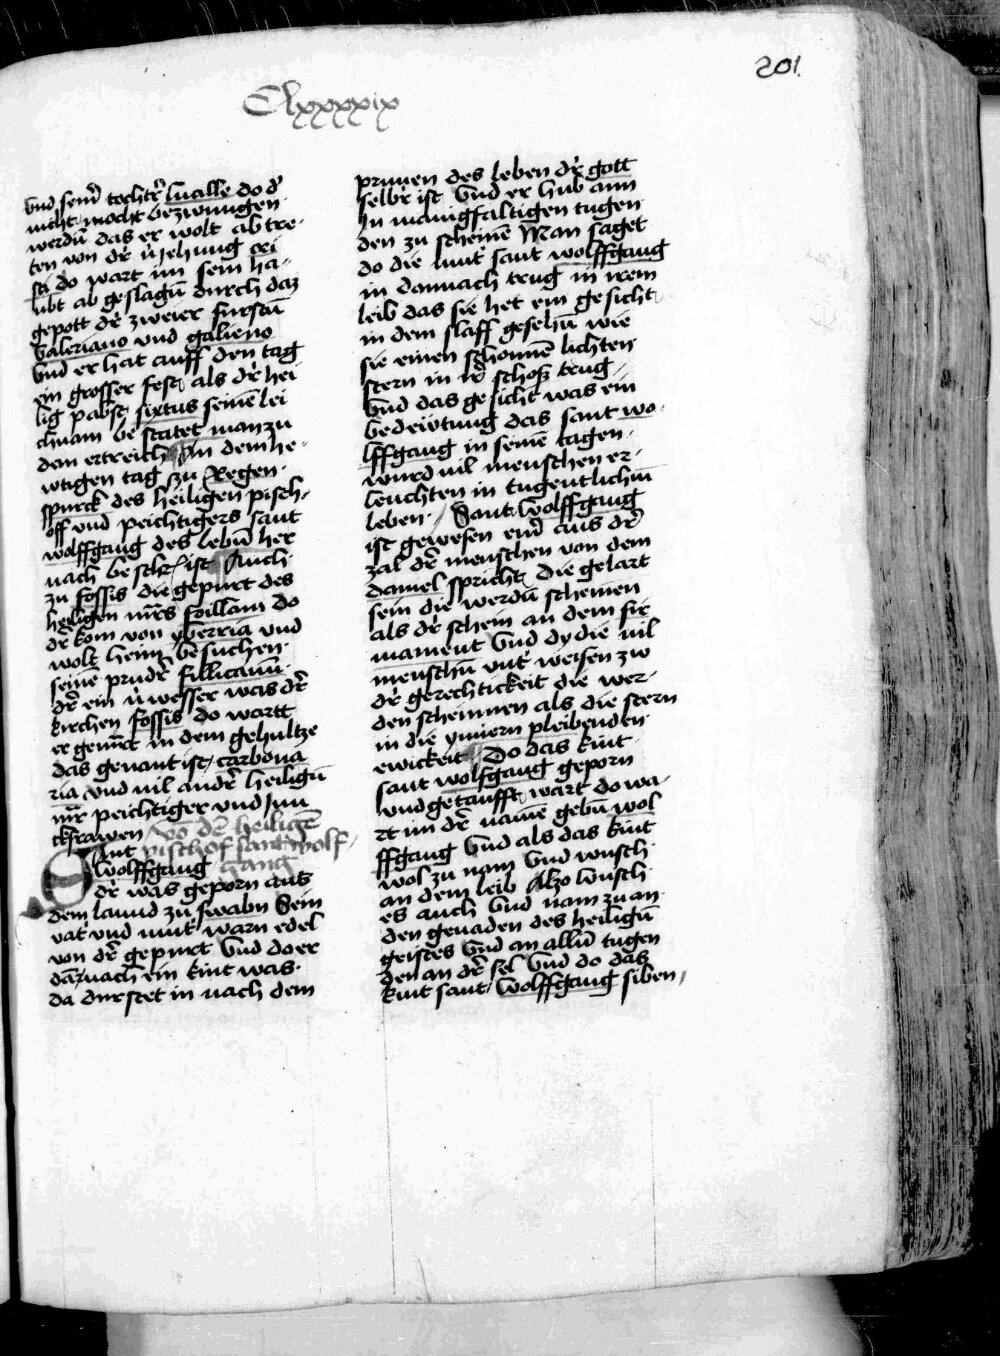 201.
Clxxxxix
vnd seinˀ tochtˀ lucille do dˀ
nicht mocht bezwungen
werdn̄ das er wolt ab tre-
ten von dˀ v̈jehung cri
sti do wart im sein ha-
ubt ab geslagn̄ durch daz
gepott dˀ zweier fursten̄
valeriano vnd galieno
vnd er hat auff den tag
ein grosser fest als dˀ hei
lig pabst sixtus seinē lei
chnam bestatet man zu
dem ertreich In dem he-
wtigen tag zu Regen-
spurck des heiligen pisch-
off vnd peichtigers sant
wolffgang des lebn̄ her
nach beschrˀ ist Auch
zu fossis die gepurt des
heiligen mr̄s foillani do
dˀ kom von yberria vnd
wolt heim besuchen
seinē prudˀ fillicanū
dˀ ein v̈wesser was dˀ
kirchen fossis do wartt
er gemˀt in dem gehultze
das genant ist carbona
ria vnd vil andˀ heilign̄
mr̄ peichtiger vnd Jun
ckfrawen vō dē heiligē
Sant pischof sant wolf-
wolffgang gang
dˀ was geporn aus
dem lannd zu swabn Sein
vatˀ vnd mutˀ warn edel
von dˀ gepurt vnd do er
darnach ein kint was
da durstet in nach dem
prunen des leben dˀ gott
selbˀ ist vnd er hub ann
In manigfaltigen tugen
den zu scheinē Man saget
do die mutˀ sant wolffgang
in dannach trug in irem
leib das sie het ein gesicht
in dem slaff gesehn̄ wie
sie einen schonnē lichten
stern in irˀ schoß trug
vnd das gesicht was ein
bedeiwtung das sant wo-
lffgang in seinē tagen
wurd vil menschen er-
leuchten in tugentlichm̄
leben Sant wolffgang
ist gewesen einˀ aus dˀ
zal dˀ menschen von dem
daniel spricht die gelart
sein die werdn̄ scheinen
als dˀ schein an dem fir
mament vnd dy die vil
menschn̄ vntˀweisen zw
dˀ gerechtickeit die wer-
den scheinnen als die stern
in die ymmern pleibenden
ewickeit Do das kint
sant wolfgang geporn
vnd getaufft wart do wa-
rt im dˀ namē gebn̄ wol
ffgang vnd als das kint
wol zu nam vnd wusch
an dem leib Also wusch
es auch vnd nam zu an
den genaden des heilign̄
geistes vnd an alln̄ tugen
den an dˀ sel vnd do das
kint sant wolffgang siben